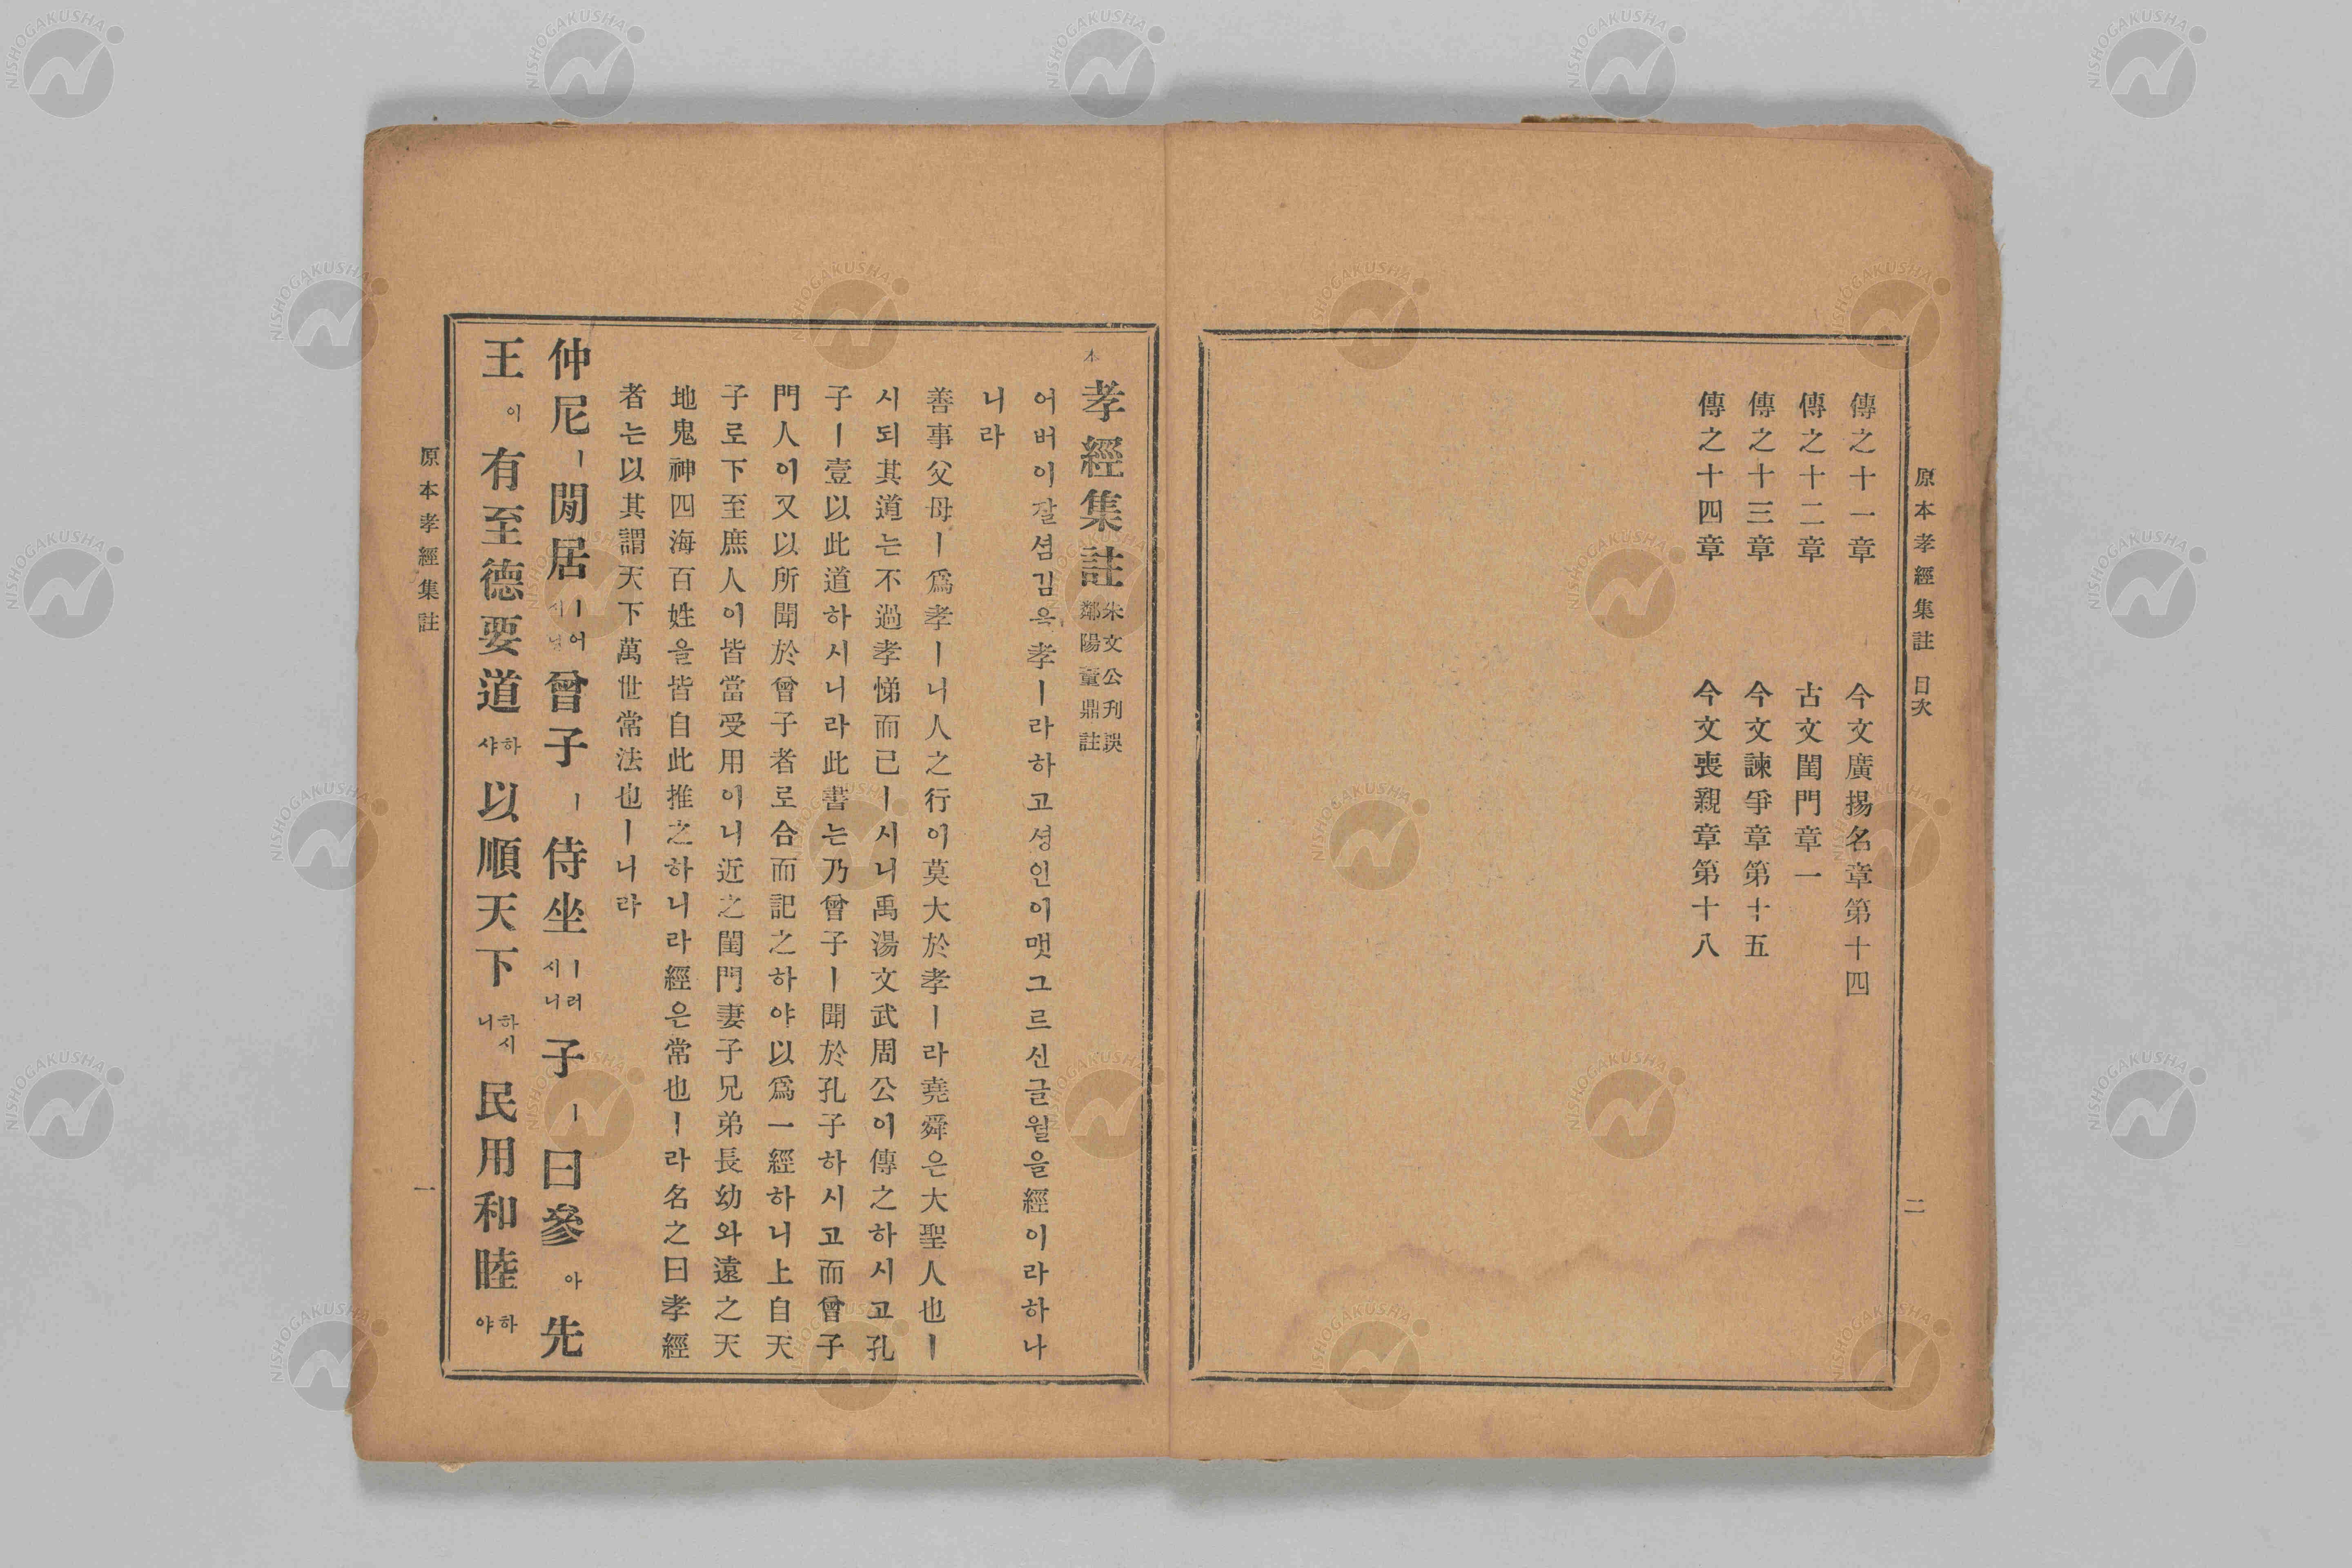 原本孝經集註 目次
二
傳之十一章 今文廣揚名章第十四
傳之十二章 古文閨門章一
傳之十三章 今文諫爭章第十五
傳之十四章 今文喪親章第十八
本
孝經集註 朱文公刊誤
鄱陽董鼎註
어버이잘셤김을孝ㅣ라하고셩인이맷그르신글월을經이라하나
니라
善事父母ㅣ爲孝ㅣ니人之行이莫大於孝ㅣ라堯舜은大聖人也ㅣ
시되其道는不過孝悌而已ㅣ시니禹湯文武周公이傳之하시고孔
子ㅣ壹以此道하시니라此書는乃曾子ㅣ聞於孔子하시고而曾子
門人이又以所聞於曾子者로合而記之하야以爲一經하니上自天
子로下至庶人이皆當受用이니近之閨門妻子兄弟長幼와遠之天
地鬼神四海百姓을皆自此推之하니라經은常也ㅣ라名之曰孝經
者는以其謂天下萬世常法也ㅣ니라
仲尼ㅣ閒居ㅣ어시曾子ㅣ侍坐ㅣ러시니子ㅣ曰參아先
王이有至德要道하샤以順天下하시니民用和睦하야
原本孝經集註
一
NISHOGAKUSHA